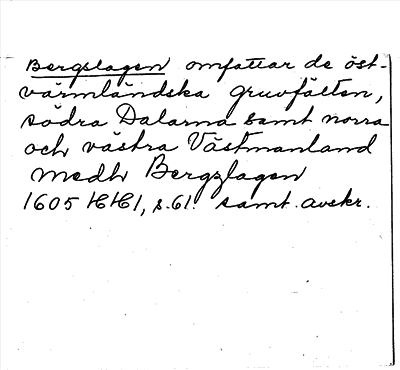 Bergslagen omfattar de öst-
värmländska gruvfälten,
södra Dalarna samt norra
och västra Västmanland
medh Bergzlagen
1605 HH1, s. 61. samt. avskr.